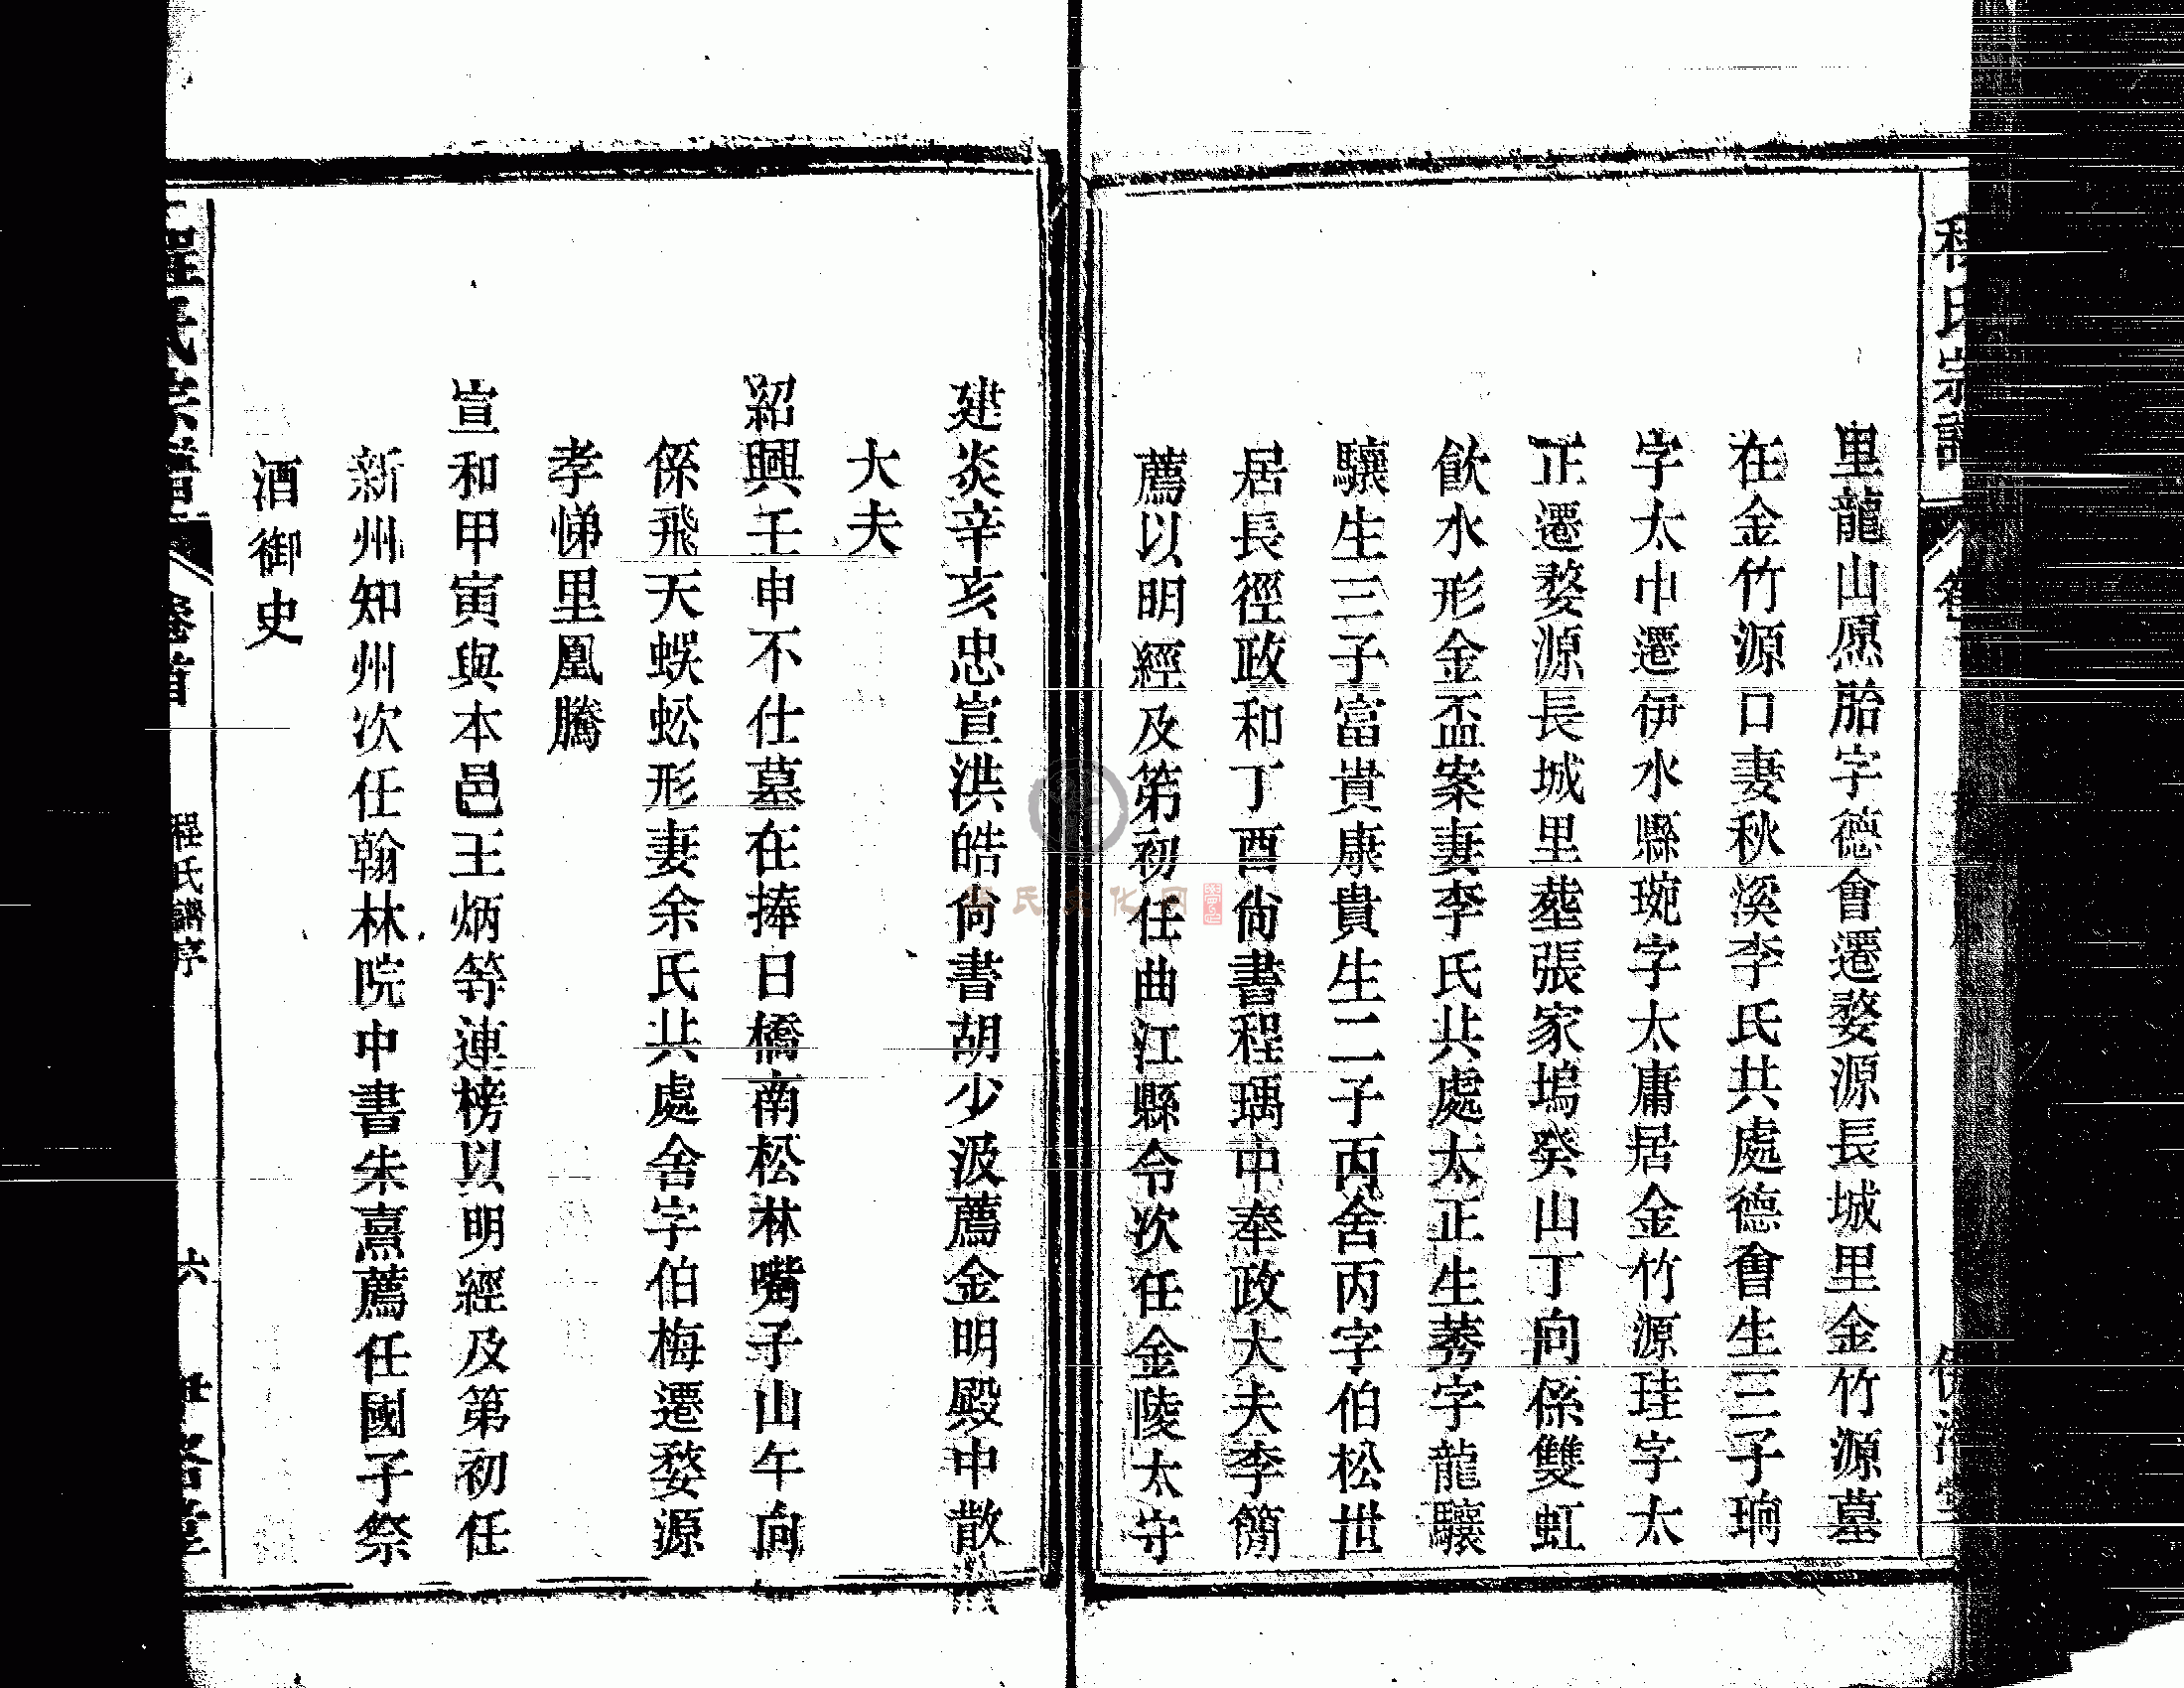 程氏宗譜
卷
里龍山原胎字德會遷婺源長城里金竹源墓
在金竹源口妻秋溪李氏共處德會生三子珦
字太中遷伊水縣琬字太庸居金竹源珪字太
正遷婺源長城里塟張家塢癸山丁向係雙虹
飲水形金盃案妻李氏共處太正生蒡字龍驤
驤生三子富貴康貴生二子丙舍丙字伯松世
居長徑政和丁酉尙書程瑀中奉政大夫李簡
薦以明經及第初任曲江縣令次任金陵太守
建炎辛亥忠宣洪皓尙書胡少汲薦金明殿中散
大夫
紹興壬申不仕墓在捧日橋南松林嘴子山午向
係飛天蜈蚣形妻余氏共處舍字伯梅遷婺源
孝悌里凰騰
宣和甲寅與本邑王炳等連榜以明經及第初任
新州知州次任翰林院中書朱熹薦任國子祭
酒御史
程氏宗譜
卷首
程氏譜序
六